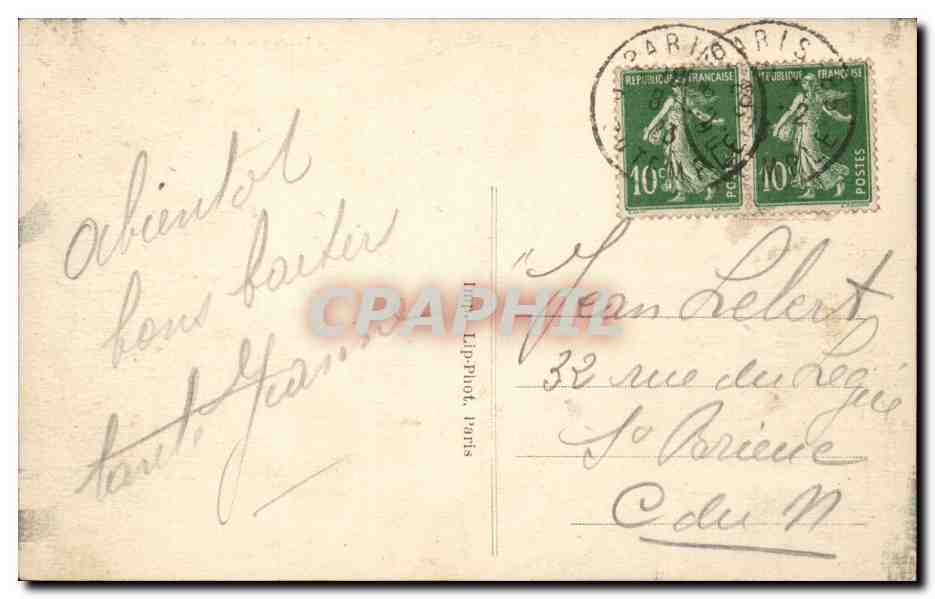 abientot
bons baisers
tante Jeanne
CPAPHIL
Imp. Lip-Phot. Paris
REPUBLIQUE FRANÇAISE
10c
POSTES
REPUBLIQUE FRANÇAISE
10c
POSTES
PARIS
PARIS
"Jean Lebert
32 rue du Légué
St Brieuc
C du N